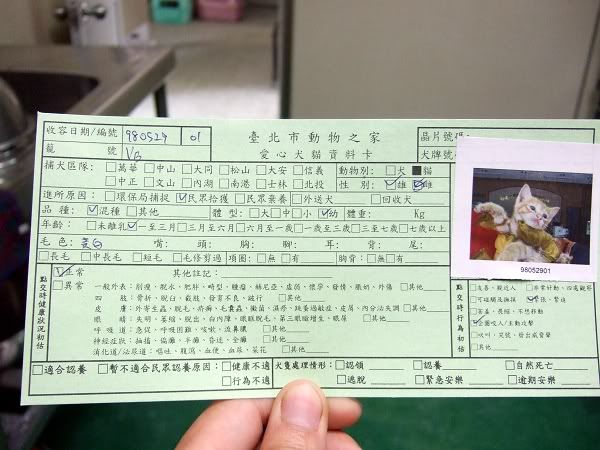 收容日期/編號 980529 01 臺北市動物之家 晶片號碼:
籠 號 愛心犬貓資料卡 犬牌號
捕犬區隊: □萬華□中山□大同□松山□大安□信義 動物別: □犬■貓
□中正□文山□內湖□南港□士林□北投 性 別: ☑雄☑雌
進所原因: □環保局捕捉☑民眾拾獲□民眾棄養□外送犬 □回收犬
品 種: ☑混種□其他 體 型: □大□中□小☑幼 體重: Kg
年齡: □未離乳☑一至三月□三至六月□六月至一歲□一歲至三歲□三至七歲□七歲以上
毛 色: 黃白 嘴: 頭: 胸: 腳: 耳: 背: 尾:
□長毛 □中長毛 □短毛 □毛修剪過 項圈: □無 □有 胸背: □無□有
點交時健康狀況初估
☑正常 其他註記:
□異常 一般外表: 削瘦、脫水、肥胖、畸型、腫瘤、虛弱、懷孕、發情、眼奶、外傷 □其他
四 肢: 骨折、脫臼、截肢、發育不良、跛行 □其他
皮 膚: 外寄生蟲、脫毛、疥癬、毛囊蟲、黴菌、濕疹、跳蚤過敏症、皮屑、內分泌失調 □其他
眼 睛: 失明、萎縮、脫出、白內障、眼瞼脫毛、第三眼瞼增生、眼屎 □其他
呼 吸 道: 急促、呼吸困難、咳嗽、流鼻膿 □其他
神經症狀: 抽搐、偏癱、半癱、昏迷、全癱 □其他
消化道/泌尿道: 嘔吐、腹瀉、血便、血尿、尿花 □其他
點交時行為初估
□友善、親近人 □非常好動、四處觀看
□可碰觸及撫摸 ☑緊張、緊迫
□害羞、畏縮、不想移動
☑企圖咬人/主動攻擊
□吠叫、哭號、發出威脅聲
□其他
98052901
□適合認養 □暫不適合民眾認養原因: □健康不適 犬隻處理情形: □認領 □認養 □自然死亡
□行為不適 □逃脫 □緊急安樂 □逾期安樂